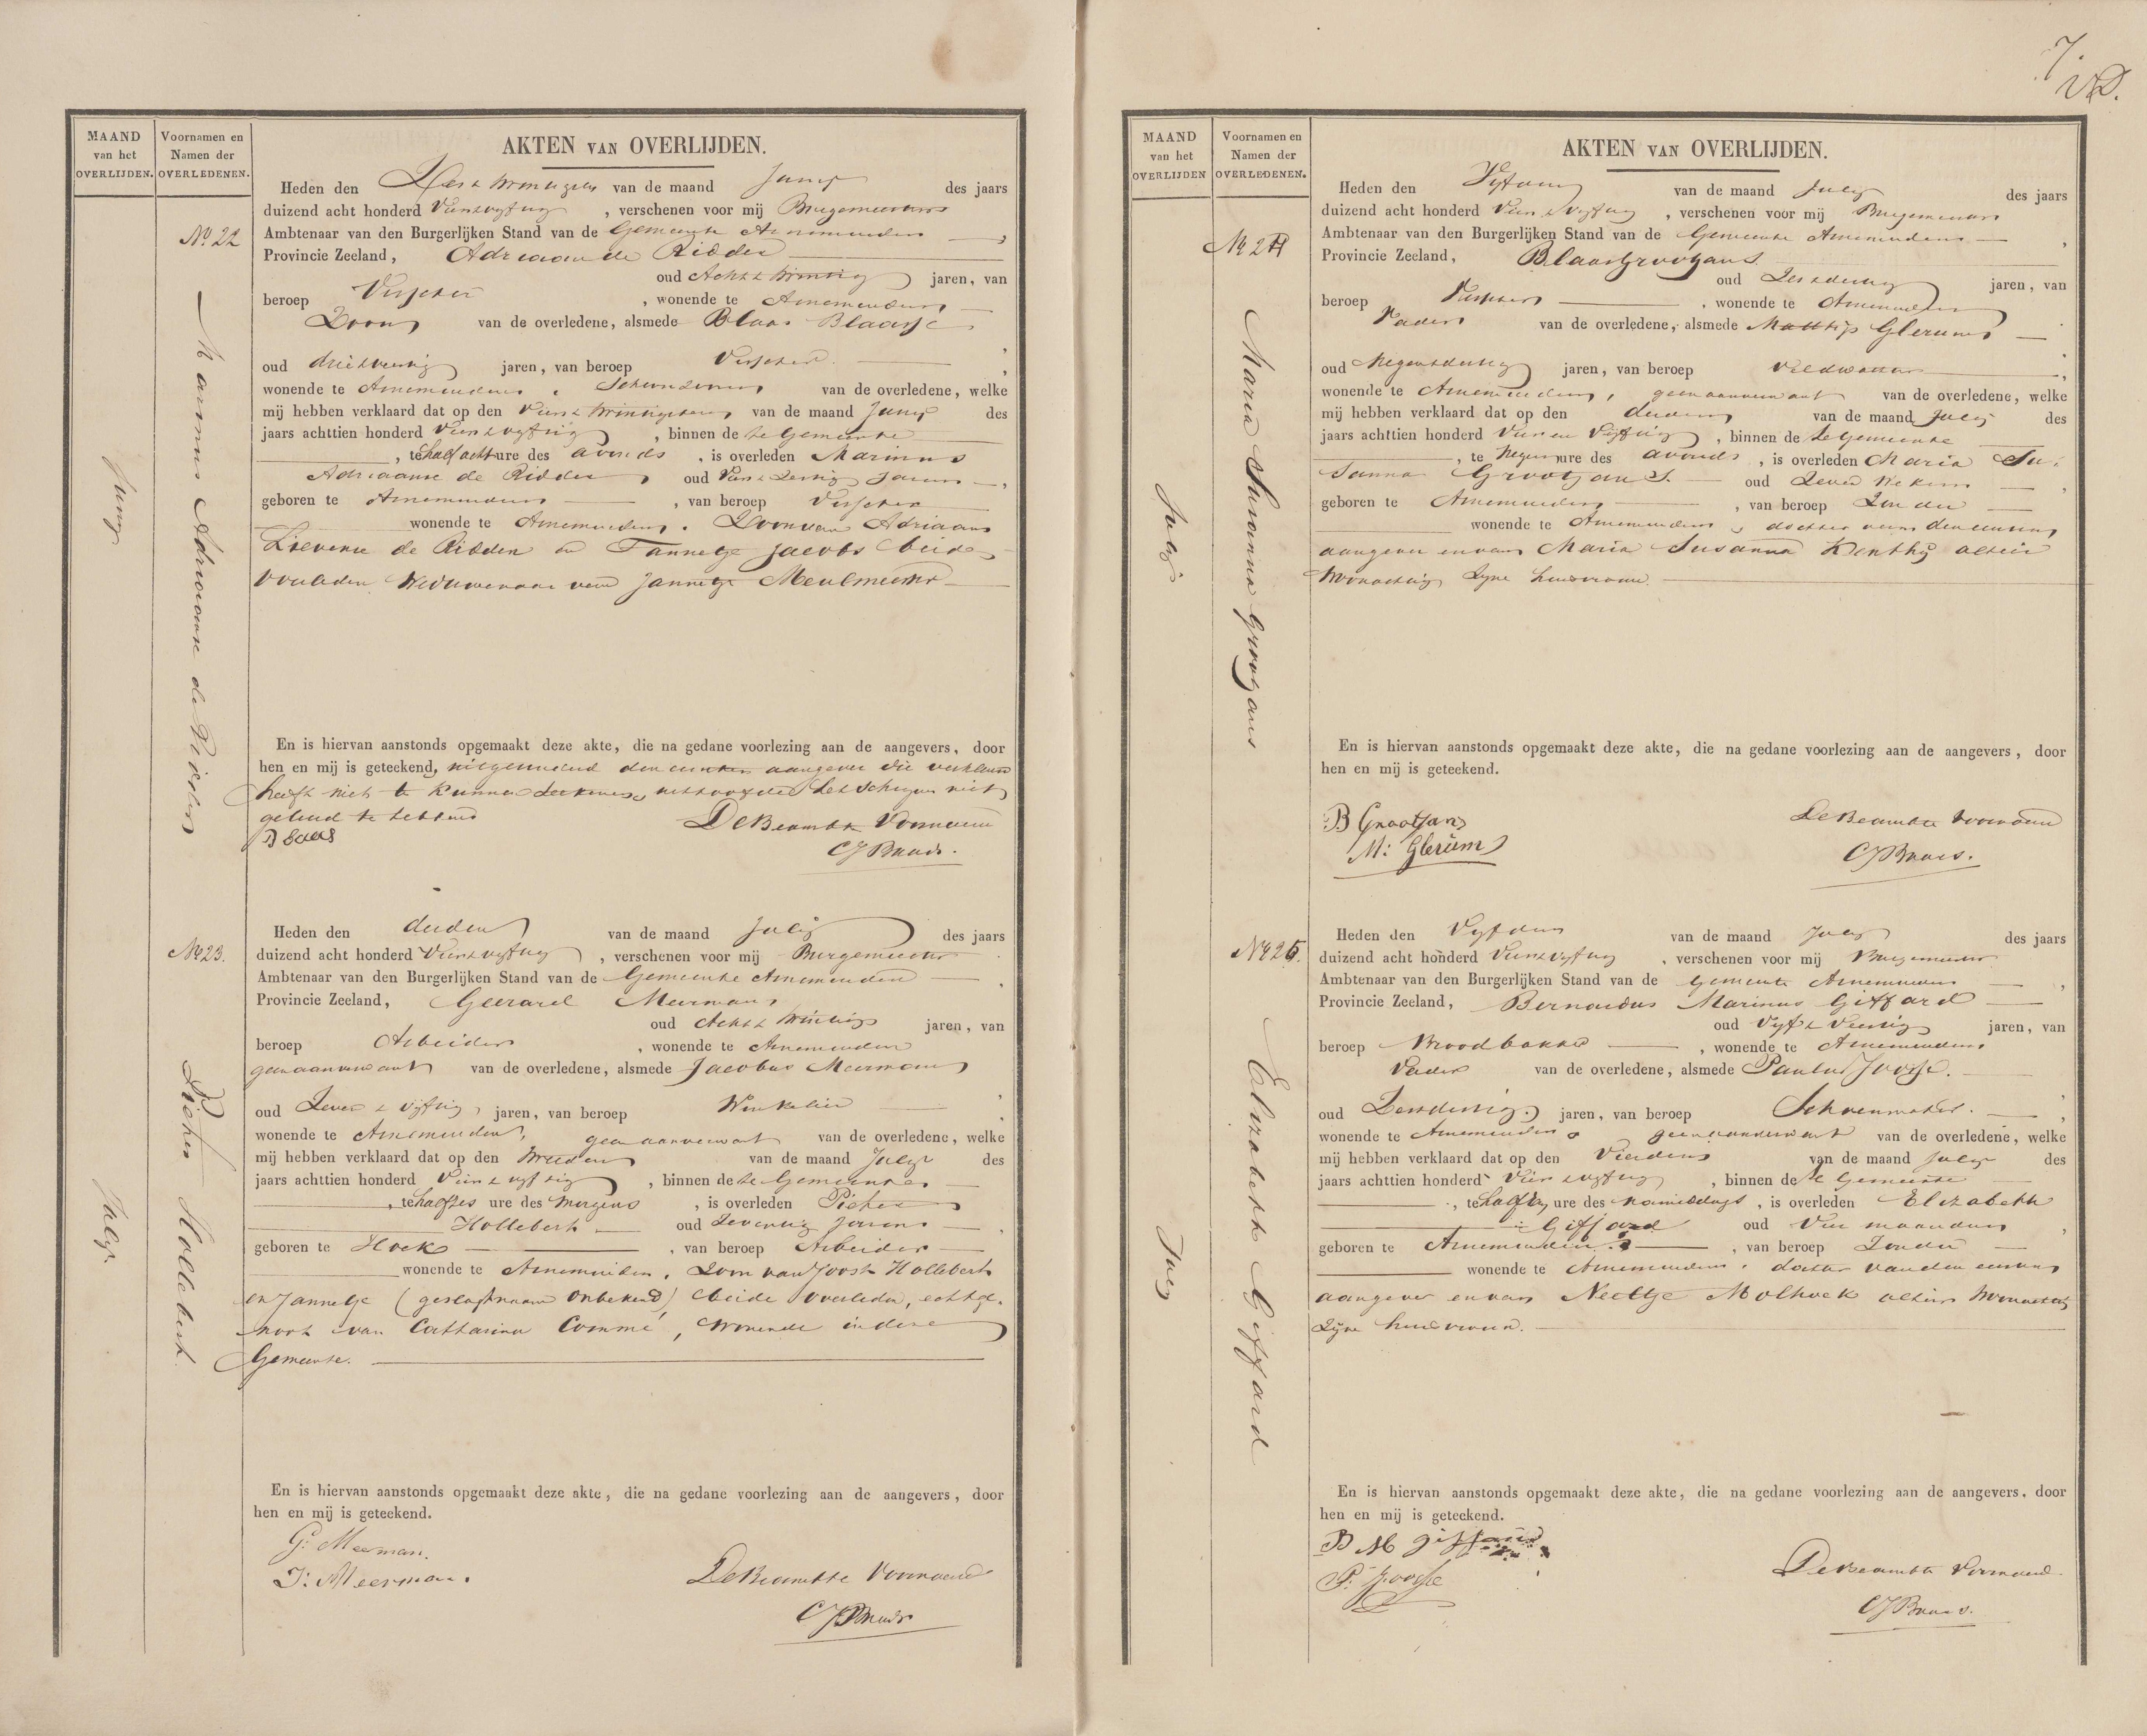 7.
MAAND
van het
OVERLIJDEN.
Voornamen en
Namen der
OVERLEDENEN.
AKTEN VAN OVERLIJDEN.
No 22
Junij
Marinus Adriaanse de Ridder
Heden den Zes & twintigsten van de maand Junij des jaars
duizend acht honderd Vier & vyftig , verschenen voor mij Burgemeester
Ambtenaar van den Burgerlijken Stand van de Gemeente Arnemuiden ,
Provincie Zeeland, Adriaan de Ridder
oud Acht & twintig jaren, van
beroep Visscher , wonende te Arnemuiden
Zoon van de overledene, alsmede Blaas Blaasse
oud drie & veertig jaren, van beroep Visscher ,
wonende te Arnemuiden, Schoonzoon van de overledene, welke
mij hebben verklaard dat op den Vier & twintigsten van de maand Junij des
jaars achttien honderd Vier & vyftig , binnen de ze Gemeente
, te half acht ure des avonds , is overleden Marinus
Adriaanse de Ridder oud Vier & Zestig Jaren ,
geboren te Arnemuiden , van beroep Visscher
wonende te Arnemuiden, Zoon van Adriaan
Lievense de Ridder en Tannetje Jacobs beide
overleden Weduwenaar van Jannetje Meulmeester
En is hiervan aanstonds opgemaakt deze akte, die na gedane voorlezing aan de aangevers, door
hen en mij is geteekend, uitgezonderd den eersten aangever die verklaard
heeft niet te kunnen teekenen uithoofde het schryven niet
geleerd te hebben
B Blaas
De Beambte Voornoemd
CJ Baars.
No 23.
Julij
Pieter Hollebert.
Heden den derden van de maand Julij des jaars
duizend acht honderd Vier & vyftig , verschenen voor mij Burgemeester
Ambtenaar van den Burgerlijken Stand van de Gemeente Arnemuiden ,
Provincie Zeeland, Geerard Meerman
oud Acht & twintig jaren, van
beroep Arbeider , wonende te Arnemuiden
geen aanverwant van de overledene, alsmede Jacobus Meerman
oud Zeven & vyftig, jaren, van beroep Winkelier ,
wonende te Arnemuiden, geen aanverwant van de overledene, welke
mij hebben verklaard dat op den tweeden van de maand Julij des
jaars achttien honderd Vier & vyftig , binnen de ze Gemeente
, te half zes ure des morgens , is overleden Pieter
Hollebert oud Zeventig jaren ,
geboren te Hoek , van beroep Arbeider
wonende te Arnemuiden, Zoon van Joost Hollebert
en Jannetje (geslachtnaam onbekend) beide overleden, echtge-
noot van Catharina Commé, wonende in deze
Gemeente.
En is hiervan aanstonds opgemaakt deze akte, die na gedane voorlezing aan de aangevers, door
hen en mij is geteekend.
G. Meerman.
J. Meerman.
De Beambte Voornoemd
CJ Baars
MAAND
van het
OVERLIJDEN
Voornamen en
Namen der
OVERLEDENEN.
AKTEN VAN OVERLIJDEN.
No 24
Julij
Maria Susanna Grootjans
Heden den Vyfden van de maand Julij des jaars
duizend acht honderd Vier & vyftig , verschenen voor mij Burgemeester
Ambtenaar van den Burgerlijken Stand van de Gemeente Arnemuiden ,
Provincie Zeeland, Blaas Grootjans.
oud Zes & dertig jaren, van
beroep Visscher , wonende te Arnemuiden
Vader van de overledene, alsmede Matthijs Glerum
oud Negen & dertig jaren, van beroep Veldwachter ,
wonende te Arnemuiden, geen aanverwant van de overledene, welke
mij hebben verklaard dat op den derden van de maand Julij des
jaars achttien honderd Vier en Vijftig , binnen de ze Gemeente
, te Negen ure des avonds , is overleden Maria Su-
sanna Grootjans. oud Zeven Weken ,
geboren te Arnemuiden , van beroep Zonder
wonende te Arnemuiden, dochter van den eersten
aangever en van Maria Susanna Kenthij alhier
woonachtig Zyne huisvrouw.
En is hiervan aanstonds opgemaakt deze akte, die na gedane voorlezing aan de aangevers, door
hen en mij is geteekend.
B Grootjans
M: Glerum
De Beambte voornoemd
CJ Baars.
No 25.
Julij
Elizabeth Giffard
Heden den Vyfden van de maand Julij des jaars
duizend acht honderd Vier & vyftig , verschenen voor mij Burgemeester
Ambtenaar van den Burgerlijken Stand van de Gemeente Arnemuiden ,
Provincie Zeeland, Bernardus Marinus Giffard
oud Vyf & Veertig jaren, van
beroep Broodbakker , wonende te Arnemuiden
Vader van de overledene, alsmede Paulus Joosse.
oud Zes & dertig jaren, van beroep Schoenmaker. ,
wonende te Arnemuiden geen aanverwant van de overledene, welke
mij hebben verklaard dat op den Vierden van de maand Julij des
jaars achttien honderd Vier & vyftig , binnen de ze Gemeente
, te half ure des namiddags , is overleden Elizabeth
Giffard oud Vier maanden ,
geboren te Arnemuiden , van beroep Zonder
wonende te Arnemuiden, dochter van den eersten
aangever en van Neeltje Molhoek alhier woonachtig
Zyne huisvrouw.
En is hiervan aanstonds opgemaakt deze akte, die na gedane voorlezing aan de aangevers, door
hen en mij is geteekend.
B M Giffard
P. Joosse
De Beambte Voornoemd
CJ Baars.